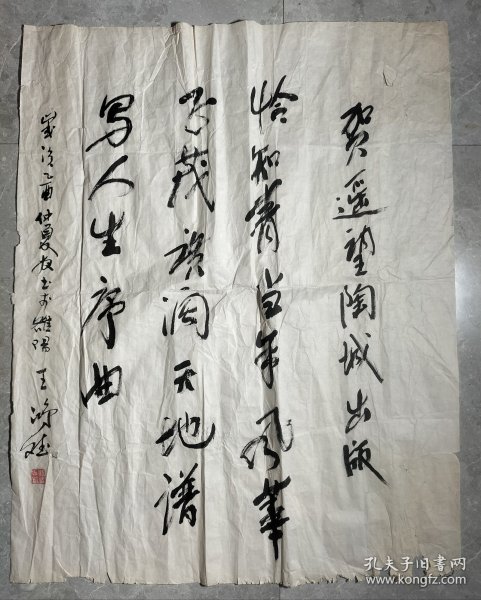 贺遥望陶城出版
恰知青当年风华
正茂挥洒天地谱
写人生序曲
岁次乙酉仲夏书于雒阳 王鸿
孔夫子旧书网
www.kongfz.com